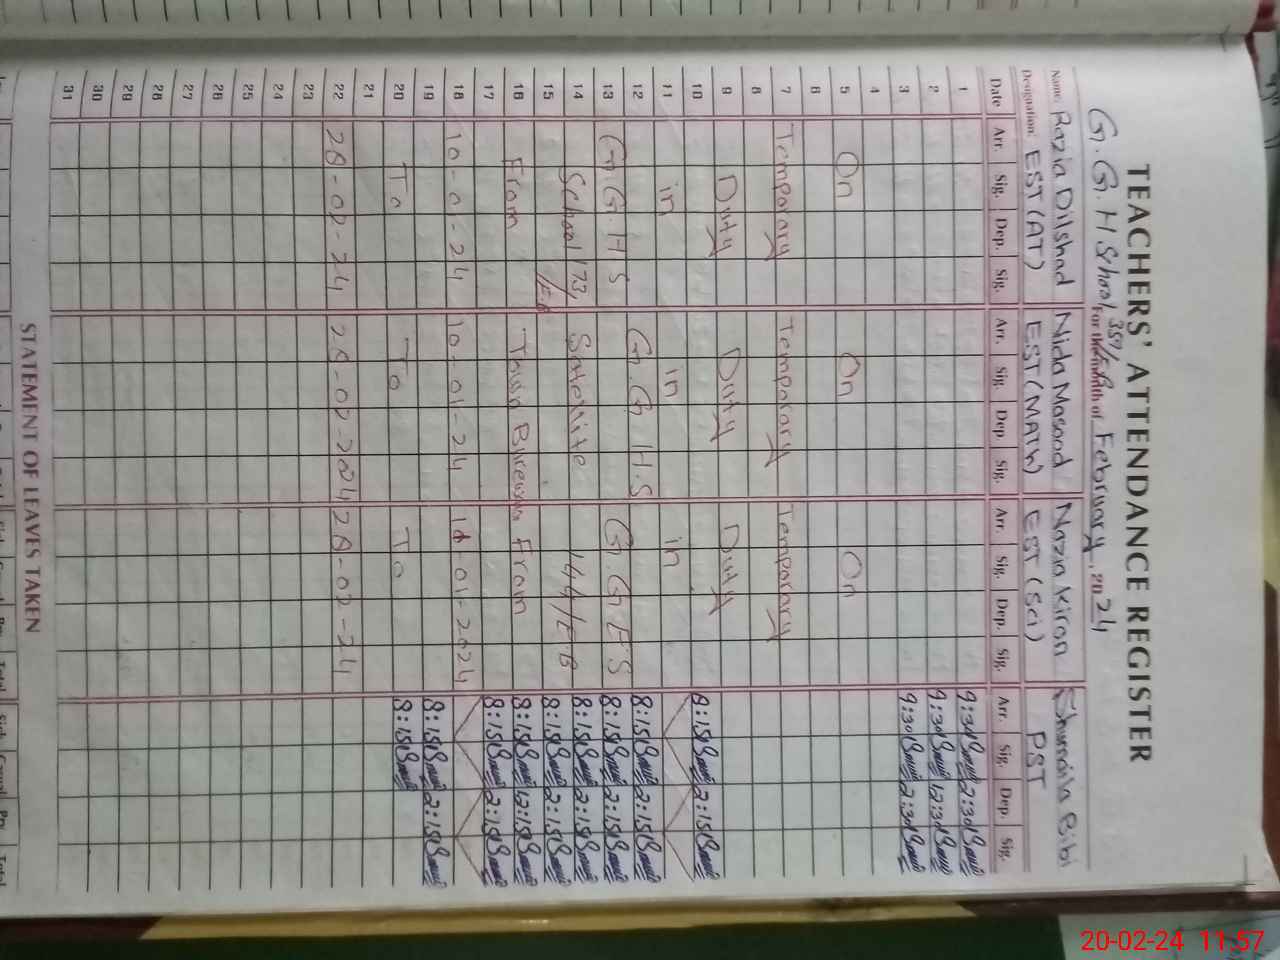 TEACHERS' ATTENDANCE REGISTER
G. G. H School 359/EB For the month of February, 2024
Name: Razia Dilshad Nida Masood Nazia Kiran Shumaila Bibi
Designation: EST (AT) EST (MATH) EST (Sci) PST
Date Arr. Sig. Dep. Sig. Arr. Sig. Dep. Sig. Arr. Sig. Dep. Sig. Arr. Sig. Dep. Sig.
1 9:30 2:30
2 9:30 12:30
3 9:30 2:30
4
5 On On On
6
7 Temporary Temporary Temporary
8
9 Duty Duty Duty
10 8:15 2:15
11 in in in
12 G.G.H.S 8:15 2:15
13 G.G.H S G.G.E.S 8:15 2:15
14 School 173 Satellite 144/EB 8:15 2:15
15 /EB 8:15 2:15
16 From Town Burewala From 8:15 12:15
17 8:15 2:15
18 10-01-24 10-01-2024
19 8:15 2:15
20 To To To 8:15
21
22 28-02-24 28-02-2024 28-02-24
23
24
25
26
27
28
29
30
31
STATEMENT OF LEAVES TAKEN
20-02-24 11:57